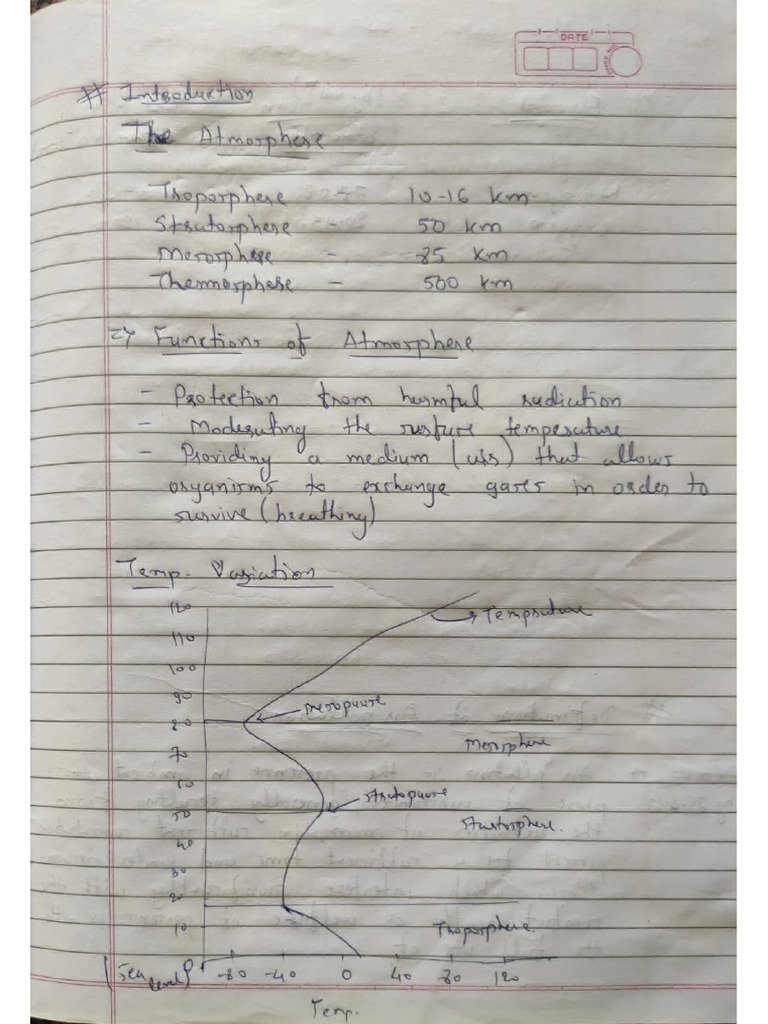 DATE
# Introduction
The Atmosphere
Troposphere - 10-16 km
Stratosphere - 50 km
Mesosphere - 85 km
Thermosphere - 500 km
=> Functions of Atmosphere
- Protection from harmful radiation
- Moderating the surface temperature
- Providing a medium (air) that allows
organisms to exchange gases in order to
survive (breathing)
Temp. Variation
120
Temprature
110
100
90
mesopause
80
Mesosphere
70
60
stratopause
50
Stratosphere.
40
30
20
10
Troposphere.
(Sea level) 0 -80 -40 0 40 80 120
Temp.